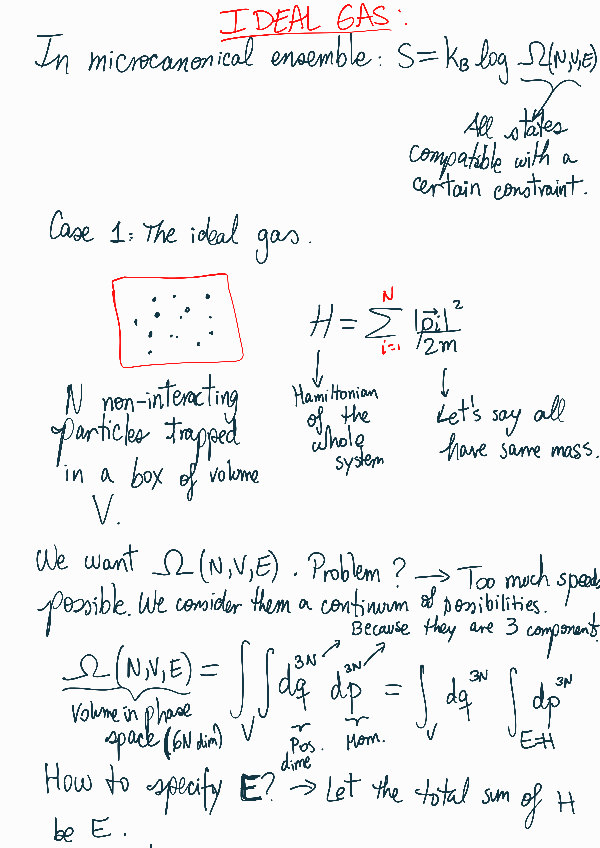 IDEAL GAS:
In microcanonical ensemble: S = k_B log Ω(N,V,E)
All states
compatible with a
certain constraint.
Case 1: The ideal gas.
H = Σ_{i=1}^{N} |p⃗i|²/2m
N non-interacting
particles trapped
in a box of volume
V.
Hamiltonian
of the
whole
system
Let's say all
have same mass.
We want Ω(N,V,E). Problem? → Too much speeds
possible. We consider them a continum of possibilities.
Because they are 3 component.
Ω(N,V,E) = ∫_V ∫ dq^{3N} dp^{3N} = ∫_V dq^{3N} ∫_{E=H} dp^{3N}
Volume in phase
space (6N dim)
Pos. Mom.
dime
How to specify E? → Let the total sum of H
be E.